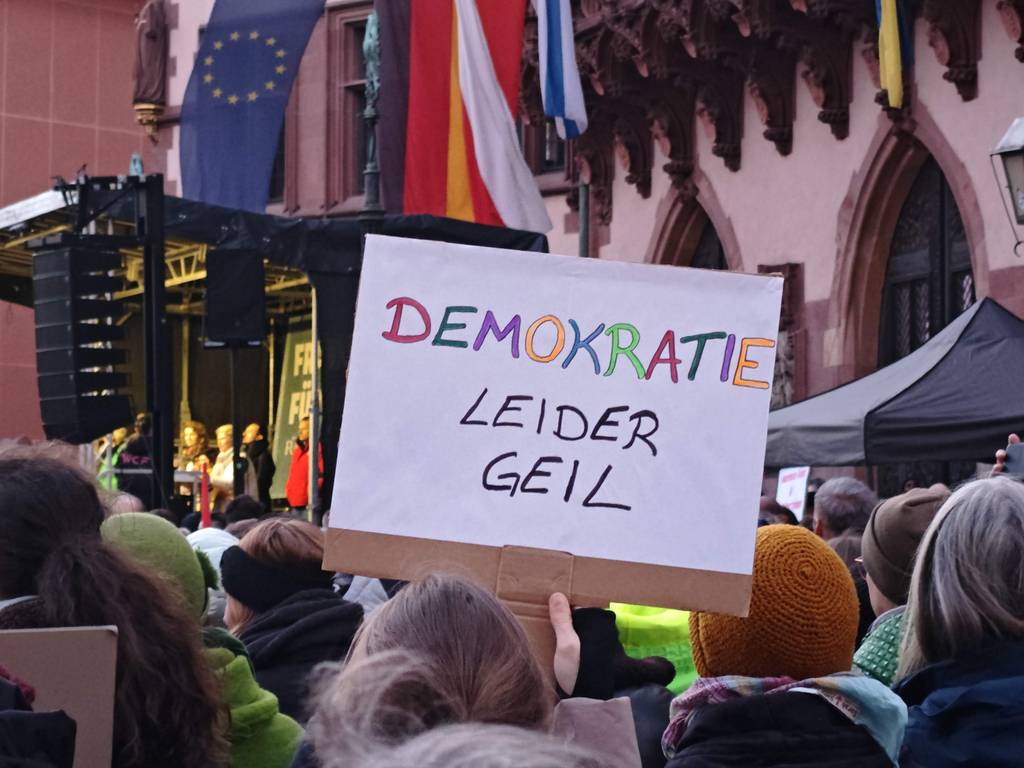 DEMOKRATIE
LEIDER
GEIL